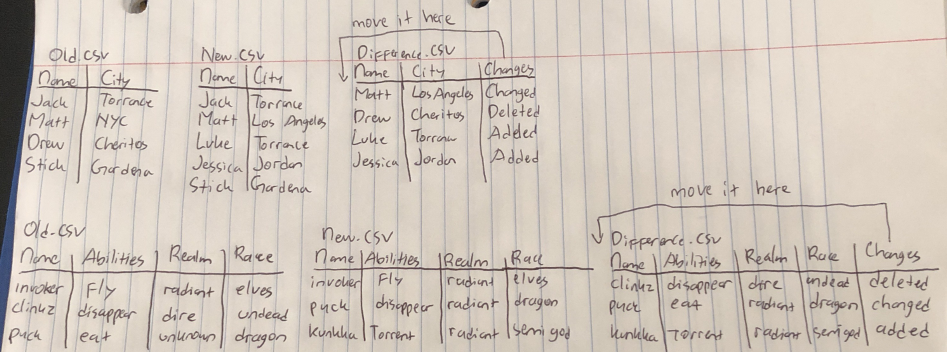 move it here
Old.csv New.csv Difference.csv
Name City Name City Name City Changes
Jack Torrance Jack Torrance Matt Los Angeles Changed
Matt NYC Matt Los Angeles Drew Cheritos Deleted
Drew Cheritos Luke Torrance Luke Torrance Added
Stich Gardena Jessica Jordan Jessica Jordan Added
Stich Gardena
move it here
Old.csv New.csv Difference.csv
Name Abilities Realm Race Name Abilities Realm Race Name Abilities Realm Race Changes
invoker Fly radiant elves invoker Fly radiant elves clinkz disappear dire undead deleted
clinkz disappear dire undead puck disappear radiant dragon puck eat radiant dragon changed
puck eat unknown dragon kunkka Torrent radiant semigod kunkka Torrent radiant semigod added